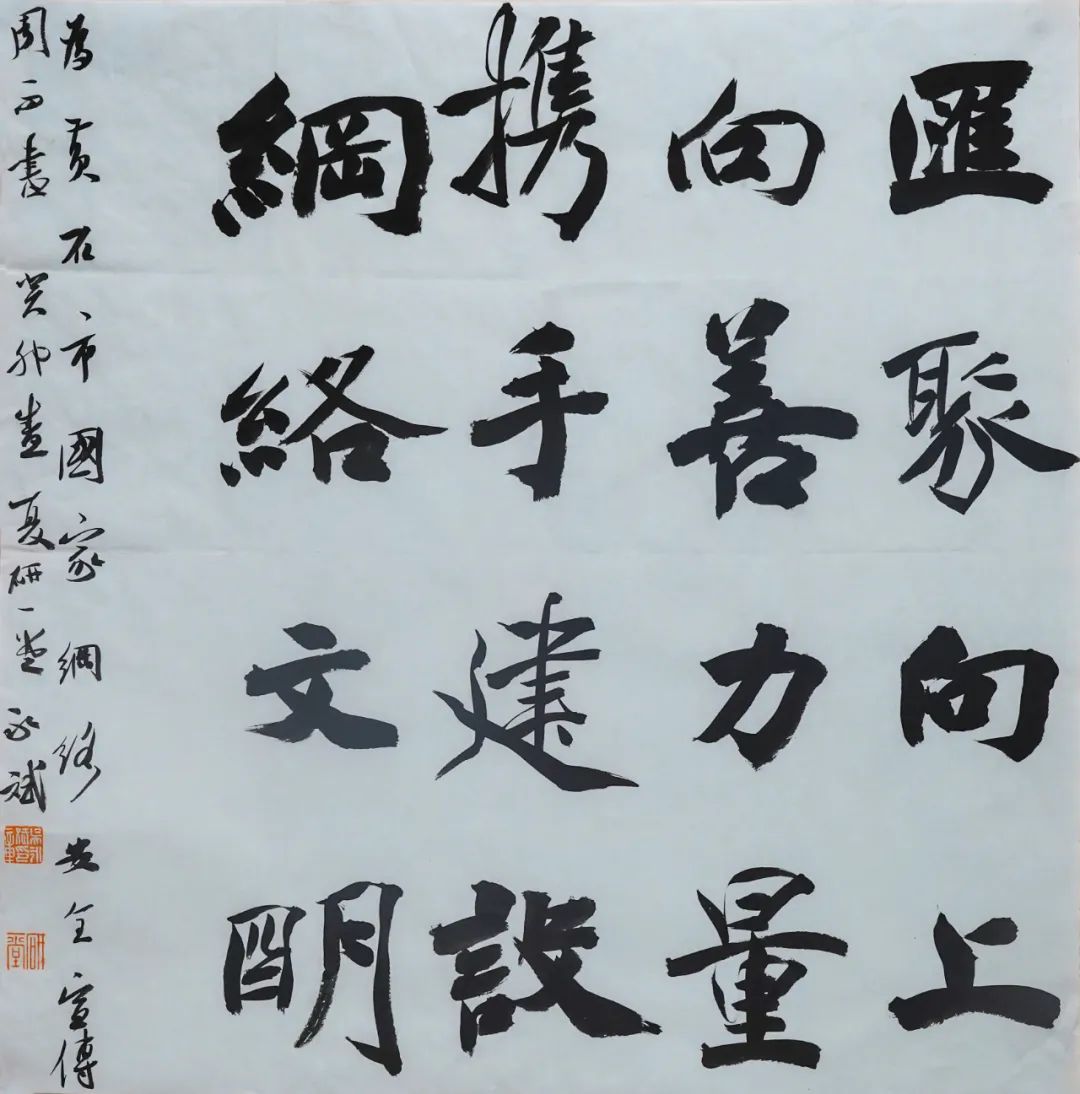 匯聚向上
向善力量
携手建設
網絡文明
為黃石市國家網絡安全宣傳
周而書癸卯夏研一堂永斌